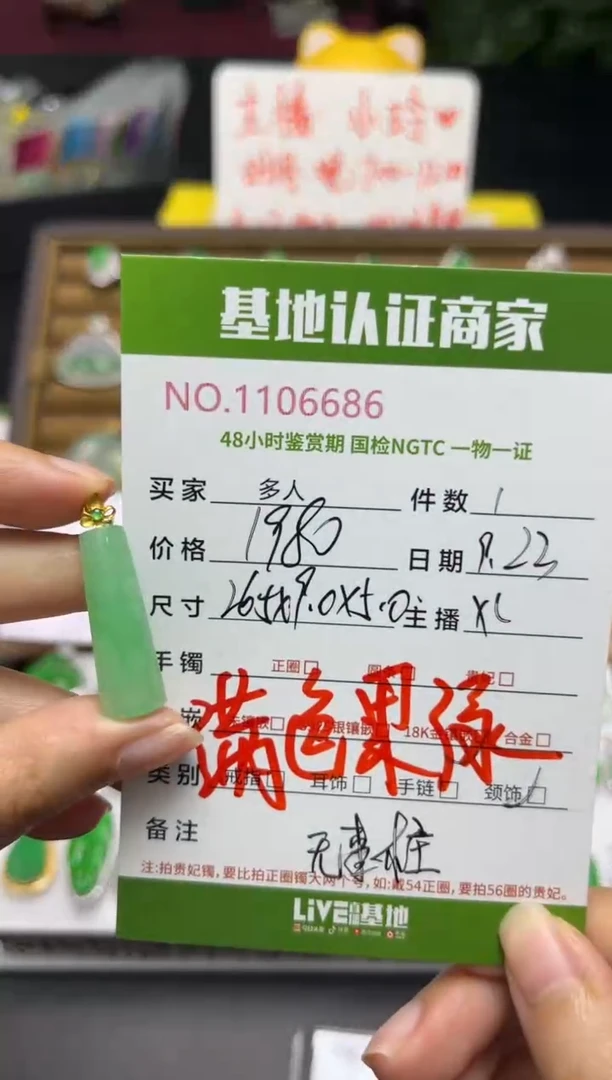 主播 小玲
基地认证商家
NO.1106686
48小时鉴赏期 国检NGTC 一物一证
买家 多人 件数 1
价格 1980 日期 9.22
尺寸 26.5x9.0x5.0 主播 XL
手镯 正圈 圆 贵妃
满色果绿
嵌 银镶嵌 18K金镶嵌 合金
类别 戒指 耳饰 手链 颈饰
备注 无事牌
注:拍贵妃镯,要比拍正圈镯大两个号,如:戴54正圈,要拍56圈的贵妃。
LIVE直播基地